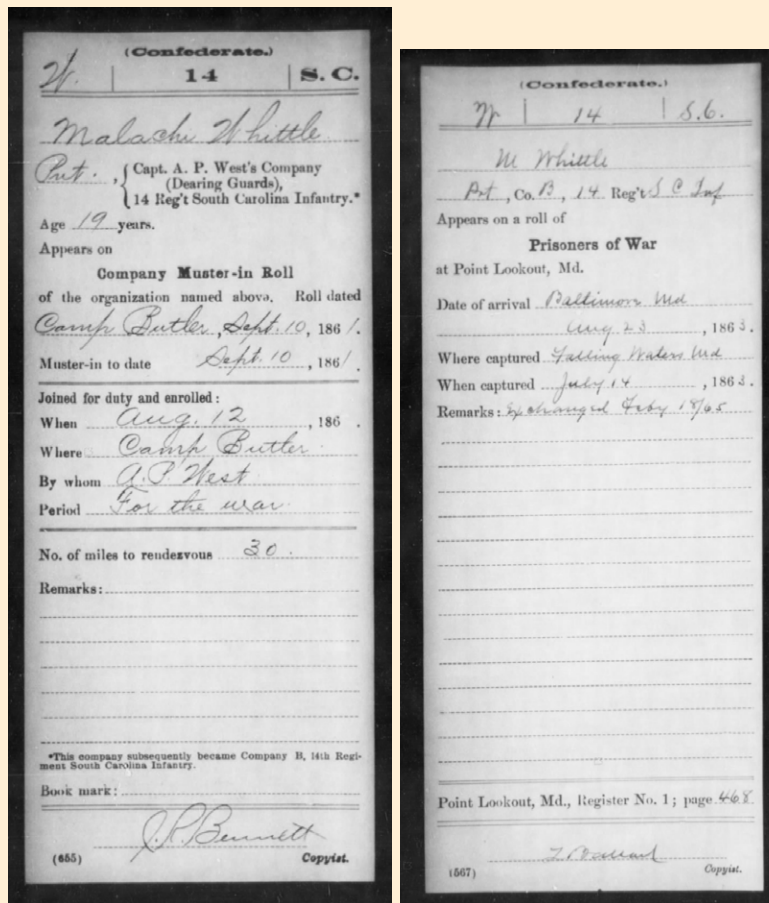 (Confederate.)
W. | 14 | S. C.
Malachi Whittle
Pvt., { Capt. A. P. West's Company
(Dearing Guards),
14 Reg't South Carolina Infantry.*
Age 19 years.
Appears on
Company Muster-in Roll
of the organization named above. Roll dated
Camp Butler, Sept. 10, 1861.
Muster-in to date Sept. 10, 1861.
Joined for duty and enrolled:
When Aug. 12, 186 .
Where Camp Butler
By whom A. P. West
Period For the war
No. of miles to rendezvous 30.
Remarks:
*This company subsequently became Company B, 14th Regi-
ment South Carolina Infantry.
Book mark:
J. R. Bennett
(655) Copyist.
(Confederate.)
W | 14 | S.C.
M Whittle
Pvt, Co. B, 14 Reg't S C Inf
Appears on a roll of
Prisoners of War
at Point Lookout, Md.
Date of arrival Baltimore Md
Aug 23, 1863.
Where captured Falling Waters Md
When captured July 14, 1863.
Remarks: Exchanged Feby 18/65
Point Lookout, Md., Register No. 1; page 468
(567) Copyist.